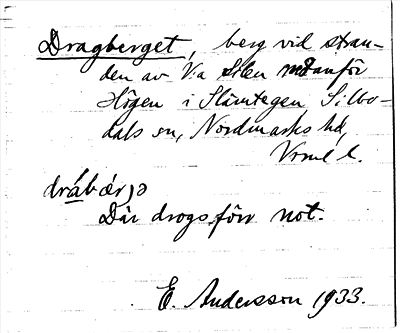 Dragberget, berg vid stran-
den av V:a Silen utanför
Högen i Slämtegen Silbo-
dals sn, Nordmarks hd,
Vrml l.
drábærjə
Där drogs förr not.
E. Andersson 1933.